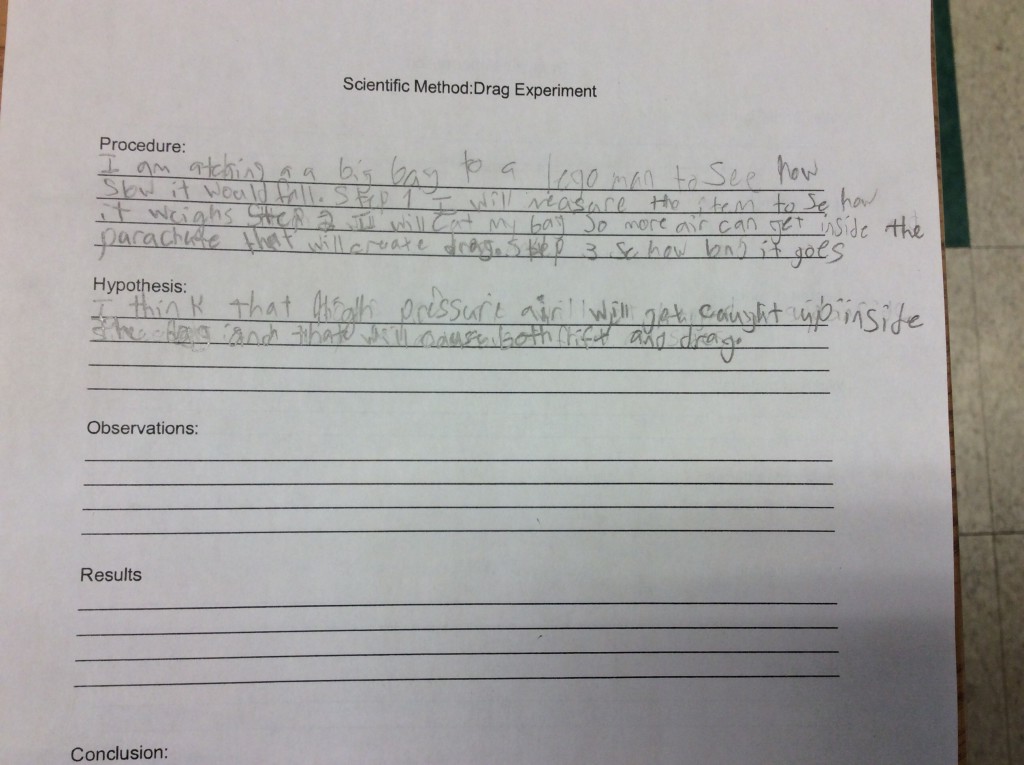 Scientific Method:Drag Experiment
Procedure:
I am atching a a big bag to a lego man to See how
Slow it would fall. Step 1 I will measure the item to Se how
it weighs Step 2 I will cat my bag So more air can get inside the
parachute that will create drag. Step 3 Se how long it goes
Hypothesis:
I think that High pressure air will get caught up inside
the bag and that will cause both lift and drag.
Observations:
Results
Conclusion: